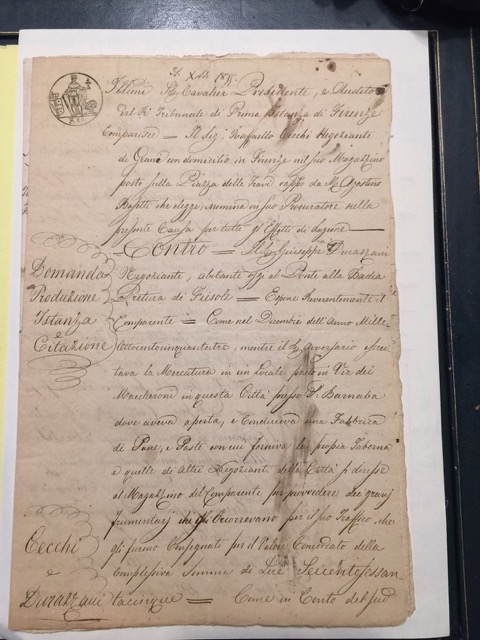 Illmi Sigg Cavalier Presidente, e Auditori
del R° Tribunale di Prima Istanza di Firenze
Comparisce = Il Sig: Raffaello Cecchi Negoziante
di Grani con domicilio in Firenze nel suo Magazzino
posto sulla Piazza delle Travi rapp to da Mr Agostino
che elegge, e nomina in suo Procuratore nella
presente Causa per tutti gl'Effetti di ragione
Contro = Il Sig Giuseppe Durazzani
Domanda
Produzione
Istanza
e Citazione
Negoziante, abitante oggi al Ponte alla Badia
Pretura di Fiesole = Espone Reverentemente il
Comparente = Come nel Decembre dell'Anno Mille
Ottocentocinquantatre, mentre il di Avversario eserci
tava la Mercatura in un Locale posto in Via dei
Maccheroni in questa Città presso S. Barnaba
dove aveva aperta, e Conduceva una Fabbrica
di Pane, e Paste con cui forniva la propria Taberna
e quelle di altri Negozianti della Città si diresse
al Magazzino del Comparente per provvedere dei grani
frumentarj che gli Occorrevano per il suo Traffico, che
gli furono Consegnati per il Valore Concordato della
Complessiva Somma di Lire Seicentosessan
Cecchi
e
Durazzani
tacinque = Come in Conto del sud